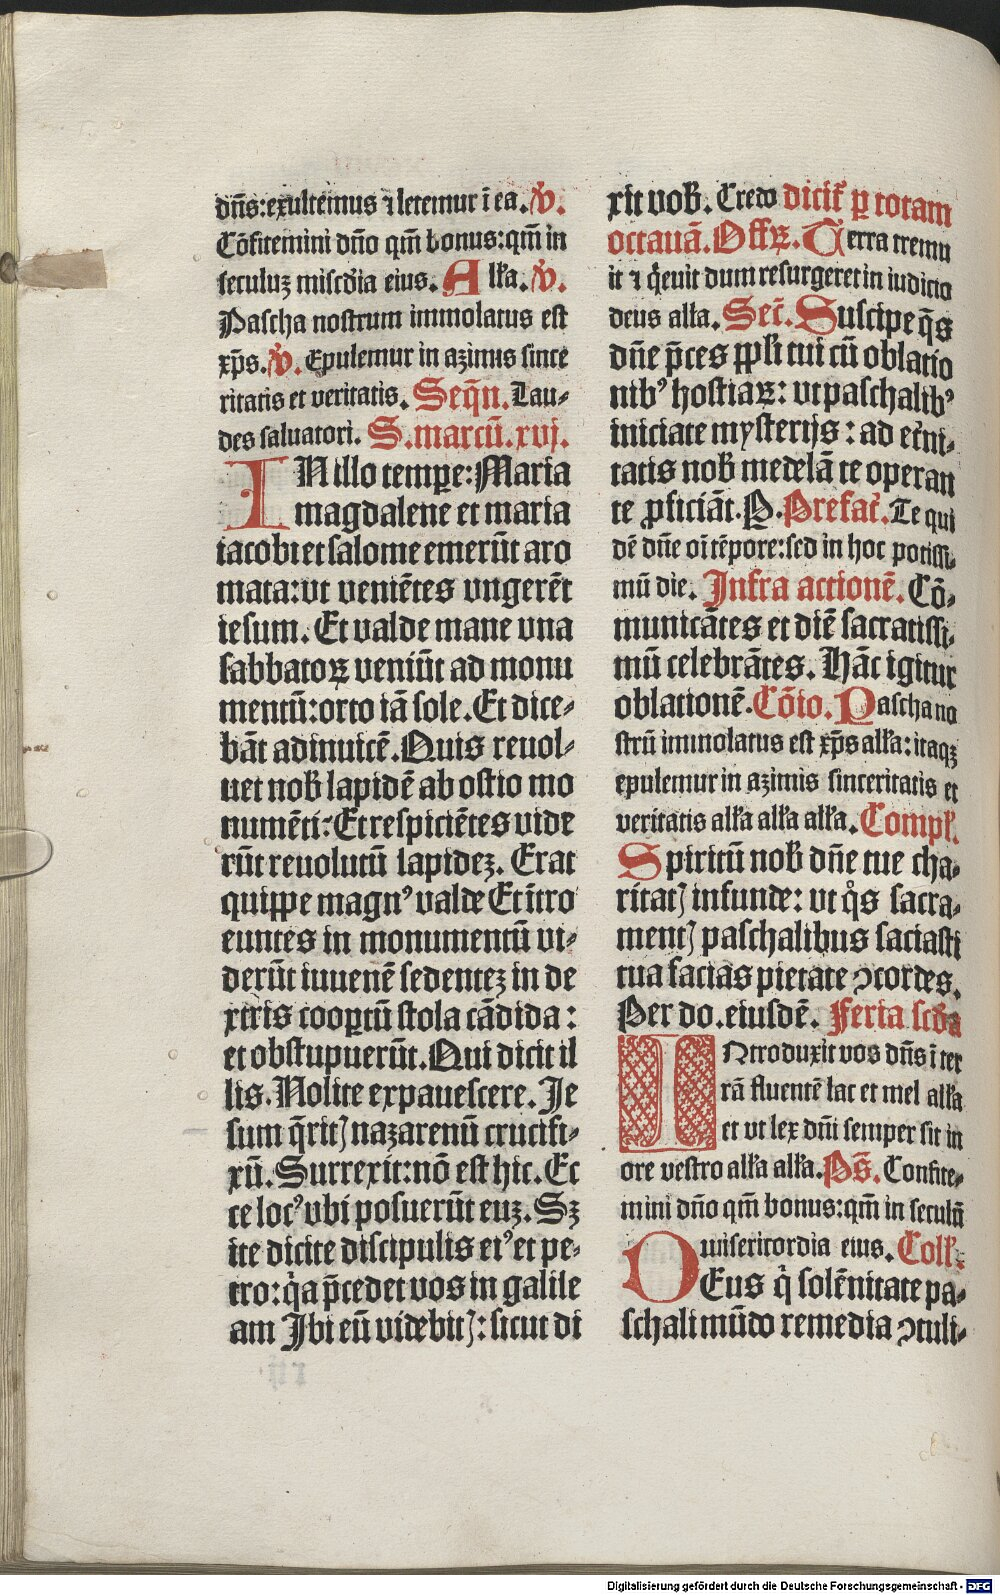 dn̄s:exultemus ⁊ letemur ī ea. V̓.
Cōfitemini dn̄o qm̄ bonus:qm̄ in
seculuʒ misc̄dia eius. Alľa. V̓.
Pascha nostrum immolatus est
xp̄s. V̓. Epulemur in azimis since
ritatis et veritatis. Seq̄n. Lau-
des saluatori. S. marcū. xvj.
IN illo temꝑe: Maria
magdalene et maria
iacobi et salome emerūt aro
mata: vt veniētes vngerēt
iesum. Et valde mane vna
sabbatoꝝ veniūt ad monu
mentū: orto iā sole. Et dice-
bāt adinuicē. Quis reuol-
uet nob̄ lapidē ab ostio mo
numēti: Et respiciētes vide
rūt reuolutū lapideʒ. Erat
quippe magnꝰ valde Et ītro
euntes in monumentū vi-
derūt iuuenē sedenteʒ in de
xtris cooꝑtū stola cādida:
et obstupuerūt. Qui dicit il
lis. Nolite expauescere. Je
sum q̄ritꝭ nazarenū crucifi-
xū. Surrexit: nō est hic. Ec
ce locꝰ vbi posuerūt euʒ. Sʒ
ite dicite discipulis eiꝰ et pe-
tro: q̇a p̄cedet vos in galile
am Jbi eū videbitꝭ: sicut di
xit vob̄. Credo dicit̄ ꝑ totam
octauā. Offꝝ. Terra tremu
it ⁊ q̇euit dum resurgeret in iudicio
deus alľa. Sec̄. Suscipe q̄s
dn̄e p̄ces ppľi tui cū oblatio
nibꝰ hostiaꝝ: vt paschalibꝰ
iniciate mysterijs: ad et̄ni-
tatis nob̄ medelā te operan
te ꝓficiāt. P. Prefat̄. Te qui
dē dn̄e oī tēpore: sed in hoc potissi-
mū die. Infra actionē. Cō-
municātes et diē sacratissi-
mū celebrātes. Hāc igitur
oblationē. Cōio. Pascha no
strū immolatus est xp̄s alľa: itaqʒ
epulemur in azimis sinceritatis et
veritatis alľa alľa alľa. Compľ.
Spiritū nob̄ dn̄e tue cha-
ritatꝭ infunde: vt q̊s sacra-
mentꝭ paschalibus saciasti
tua facias pietate ꝯcordes.
Per do. eiusdē. Feria sc̄da
INtroduxit vos dn̄s ī ter
rā fluentē lac et mel alľa
et vt lex dn̄i semper sit in
ore vestro alľa alľa. Ps̄. Confite-
mini dn̄o qm̄ bonus: qm̄ in seculū
misericordia eius. Colľ.
DEus q̇ solēnitate pa-
schali mūdo remedia ꝯtuli-
Digitalisierung gefördert durch die Deutsche Forschungsgemeinschaft - DFG